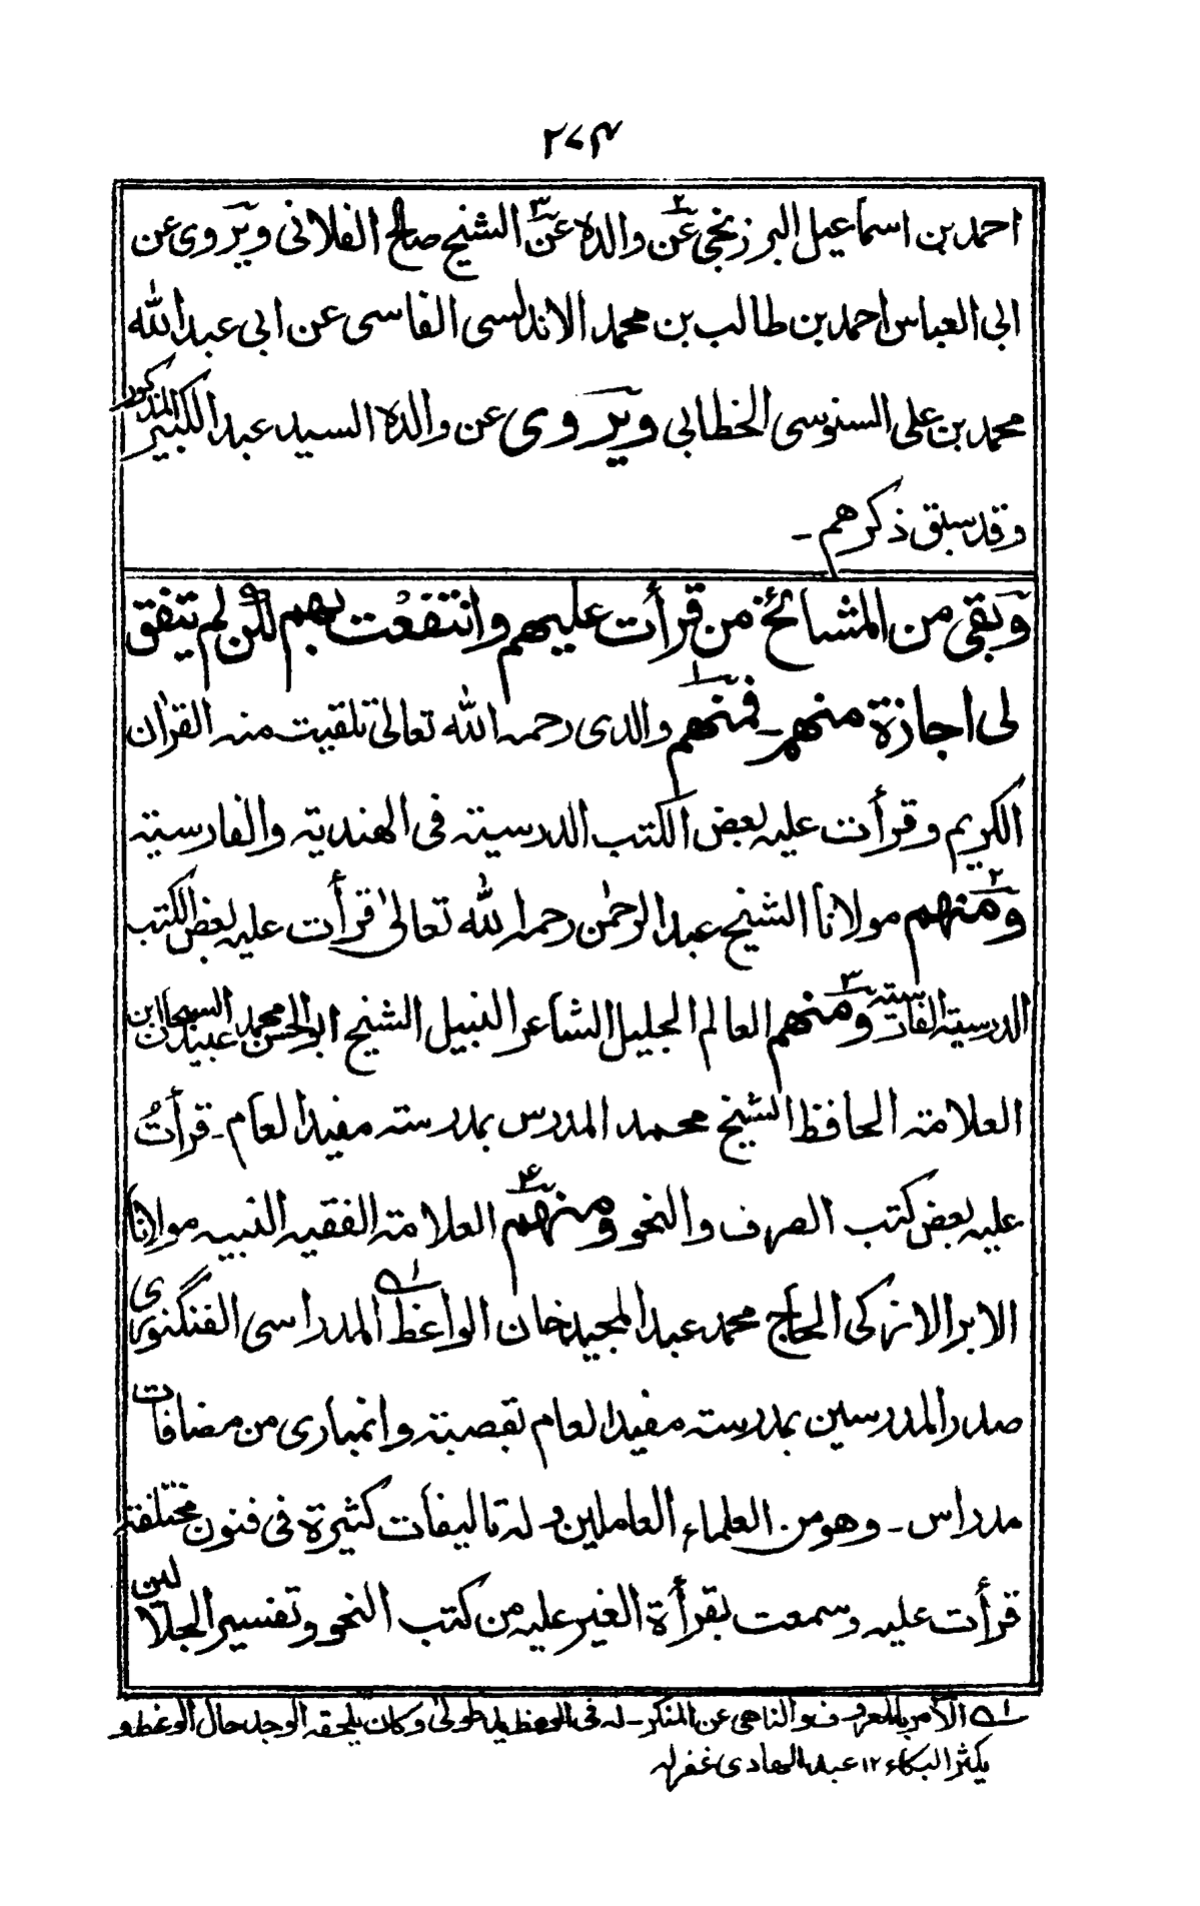 ٢٧٤
احمد بن اسماعيل البرزنجي عن٢ والده عن٣ الشيخ صالح الفلانى ويروى عن
ابى العباس احمد بن طالب بن محمد الاندلسى الفاسى عن ابى عبد الله
محمد بن على السنوسى الخطابى ويروى عن والده السيد عبد الكبير المذكور
وقد سبق ذكرهم ـ
وبقى من المشائخ من قرأت عليهم وانتفعت بهم لكن لم تتفق
لى اجازة منهم ـ فمنهم١ والدى رحمه الله تعالىٰ تلقيت منه القراٰن
الكريم وقرأت عليه بعض الكتب الدرسية فى الهندية والفارسية
ومنهم٢ مولانا الشيخ عبد الرحمٰن رحمه الله تعالىٰ قرأت عليه بعض الكتب
الدرسية الفارسية ومنهم٣ العالم الجليل الشاعر النبيل الشيخ ابو الحسن محمد عبيد السبحان بن
العلامة الحافظ الشيخ محمد المدرس بمدرسة مفيد العام ـ قرأتُ
عليه بعض كتب الصرف والنحو ومنهم٤ العلامة الفقيه النبيه مولانا
الابر الازكى الحاج محمد عبد المجيد خان الواعظ١ه المدراسى الفنگنورى
صدر المدرسين بمدرسة مفيد العام بقصبة وانمبارى من مضافات
مدراس ـ وهو من العلماء العاملين وله تاليفات كثيرة فى فنون مختلفة
قرأت عليه وسمعت بقرأة الغير عليه من كتب النحو وتفسير الجلالين
١ه الآمر بالمعروف والناهى عن المنكر ـ له فى الوعظ يد طولىٰ وكان يلحقه الوجد حال الوعظ و
يكثر البكاء ١٢ عبد الهادى غفر له